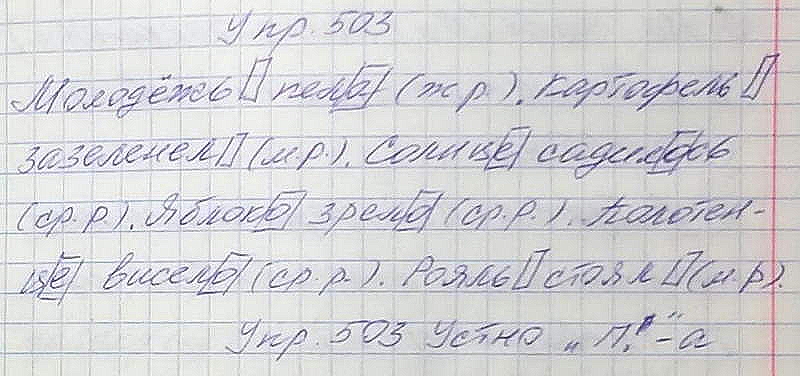 Упр. 503
Молодёжь пела (ж.р.). Картофель
зазеленел (м.р.). Солнце садилось
(ср.р.). Яблоко зрело (ср.р.). Полотен-
це висело (ср.р.). Рояль стоял (м.р).
Упр. 503 Устно „П!"-а